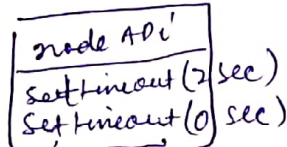 node API
setTimeout (2 sec)
SetTimeout (0 sec)